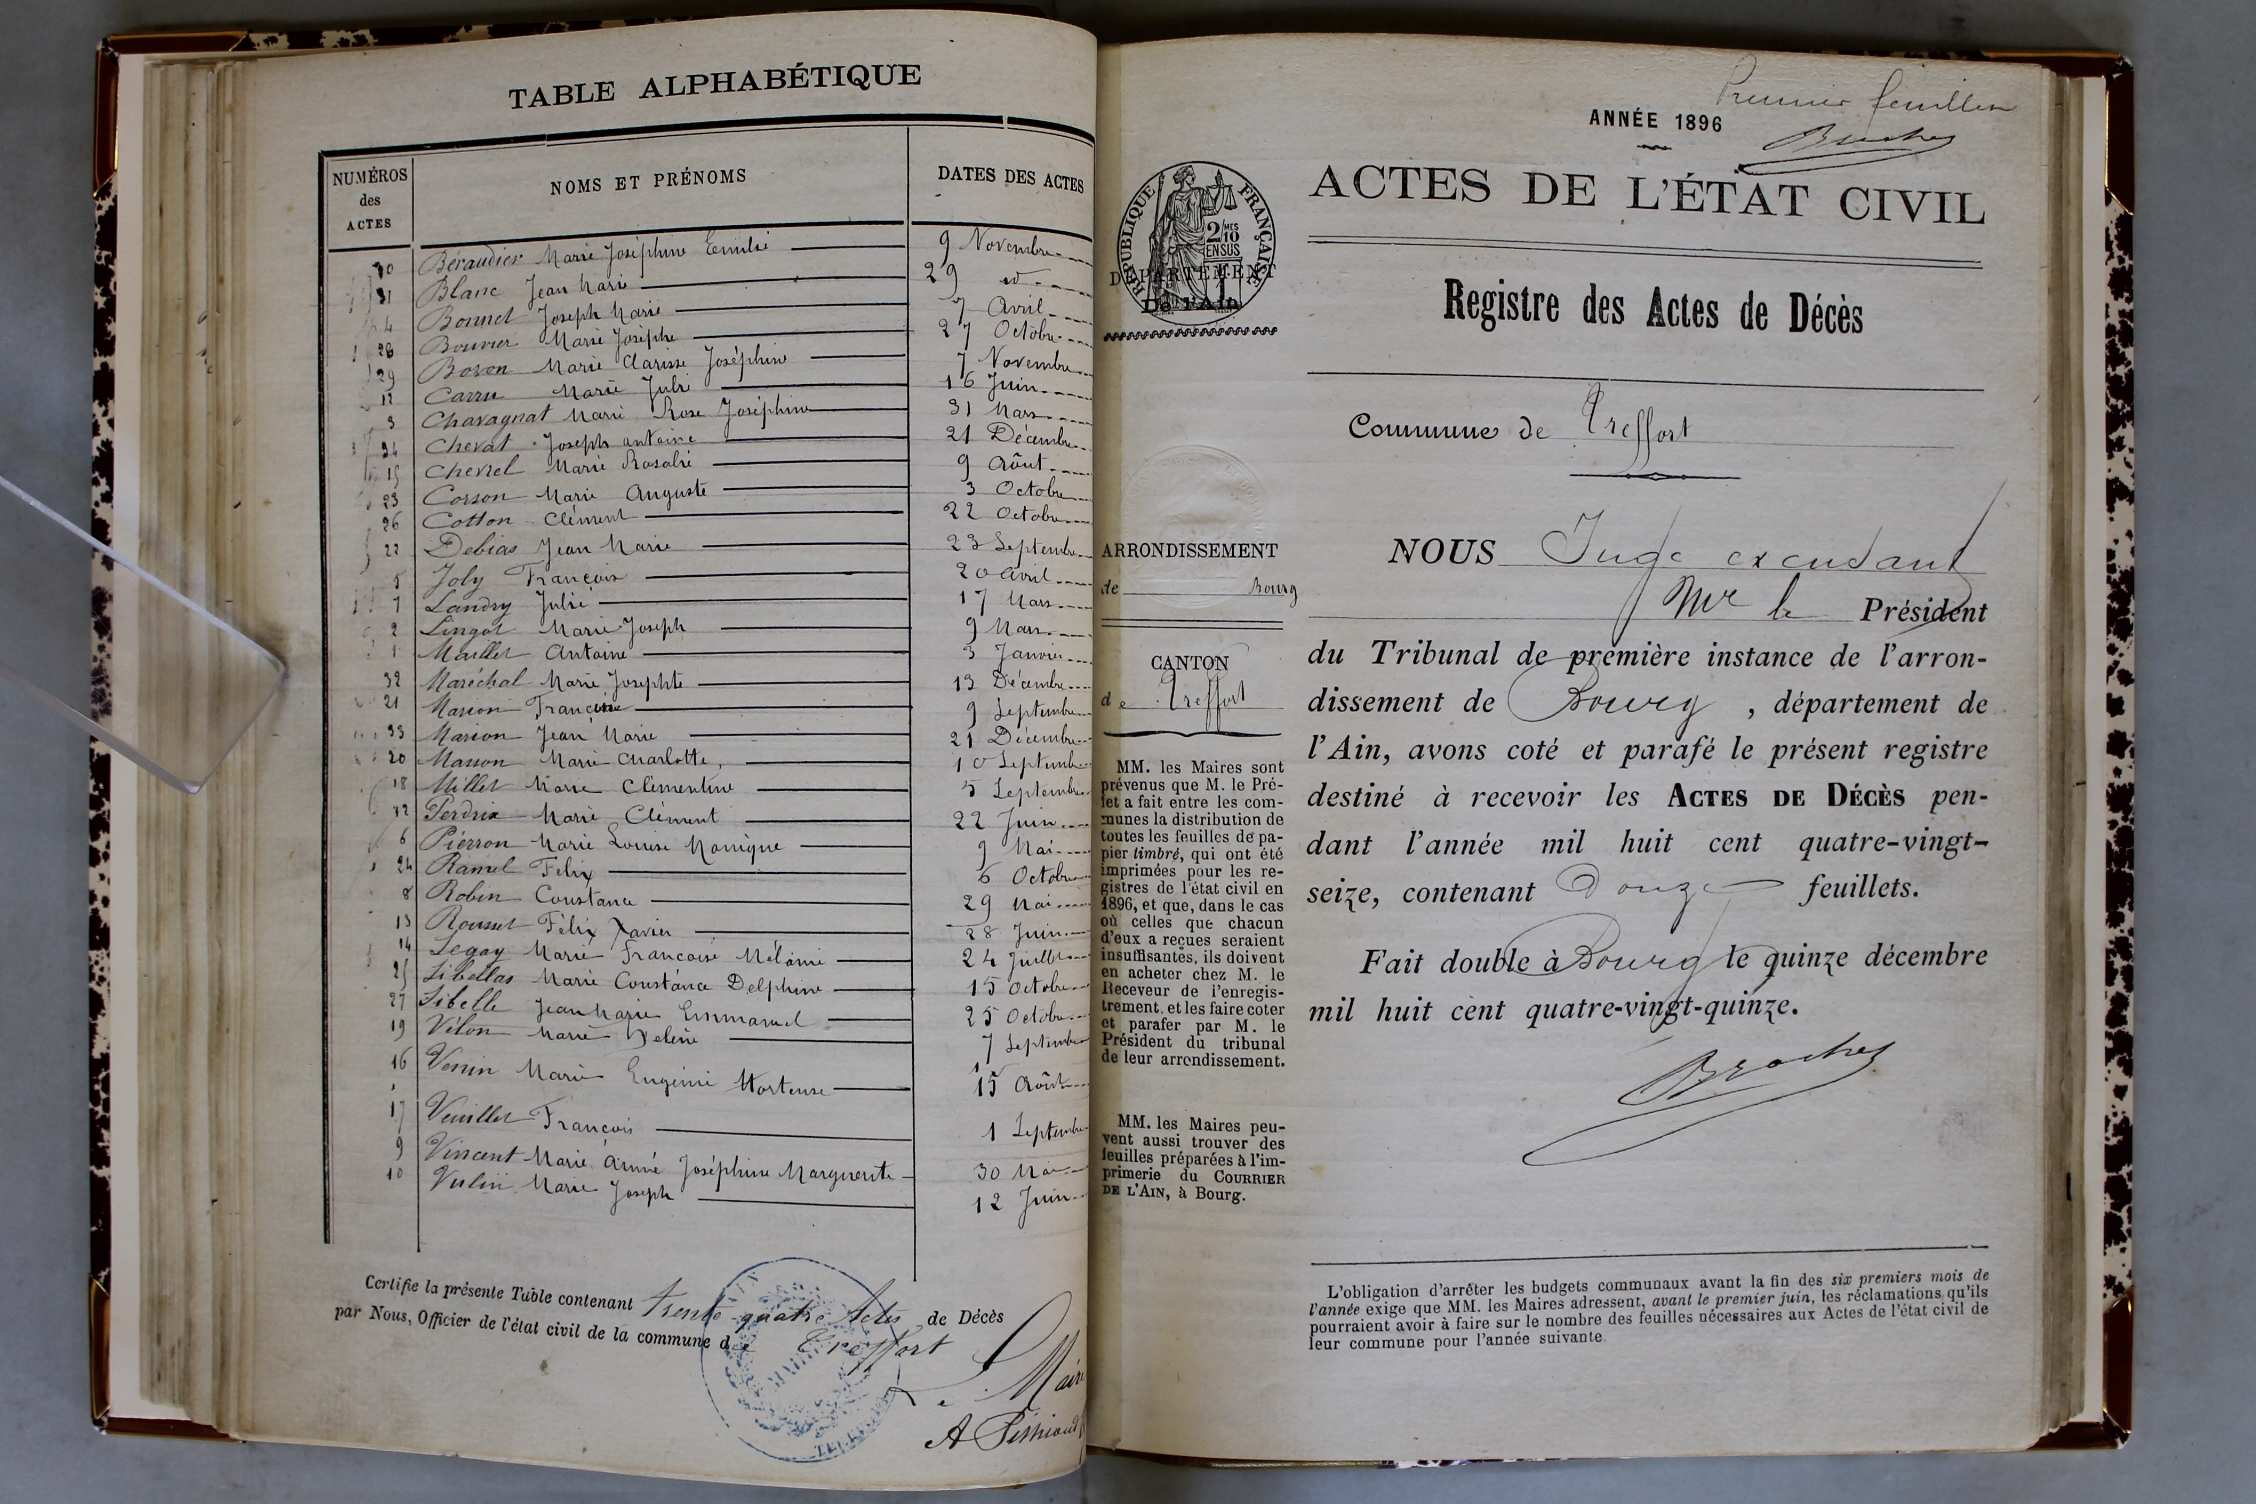 TABLE ALPHABÉTIQUE
NUMÉROS des ACTES
NOMS ET PRÉNOMS
DATES DES ACTES
30 Béraudier Marie Joséphine Emilie 9 Novembre
31 Blanc Jean Marie 29 id
4 Bonnet Joseph Marie 7 Avril
28 Bouvier Marie Josèphe 27 Octobre
29 Boron Marie Clarisse Joséphine 7 Novembre
Carru Marie Julie 16 Juin
3 Chavagnat Marie Rose Joséphine 31 Mars
34 Chevat Joseph antoine 21 Décembre
15 Chevrel Marie Rosalie 9 Août
23 Corson Marie Auguste 3 Octobre
26 Cotton Clément 22 Octobre
22 Debias Jean Marie 23 Septembre
5 Joly François 20 avril
Landry Julie 17 Mars
2 Lingot Marie Joseph 9 Mars
1 Maillet Antoine 3 Janvier
32 Maréchal Marie Josephte 13 Décembre
21 Marion Françoise 9 Septembre
33 Marion Jean Marie 21 Décembre
20 Masson Marie Charlotte 10 Septembre
18 Millet Marie Clémentine 5 Septembre
12 Perdrix Marie Clément 22 Juin
6 Pierron Marie Louise Monique 9 Mai
24 Ramel Félix 6 Octobre
8 Robin Constance 29 Mai
13 Rousset Félix Xavier 28 Juin
14 Segay Marie Françoise Mélanie 24 Juillet
25 Sibellas Marie Constance Delphine 15 Octobre
27 Sibelle Jean Marie Emmanuel 25 Octobre
19 Vélon Marie Hélène 7 Septembre
16 Venin Marie Eugénie Hortense 15 Août
17 Veuillet François 1 Septembre
9 Vincent Marie Aimé Joséphine Marguerite 30 Mai
10 Vulin Marie Joseph 12 Juin
Certifie la présente Table contenant trente-quatre Actes de Décès
par Nous, Officier de l'état civil de la commune de Treffort
Le Maire
Premier feuillet
ANNÉE 1896
Broches
ACTES DE L'ÉTAT CIVIL
RÉPUBLIQUE FRANÇAISE
2/10 MES
EN SUS
DÉPARTEMENT
De l'Ain
Registre des Actes de Décès
Commune de Treffort
ARRONDISSEMENT
de Bourg
CANTON
de Treffort
MM. les Maires sont
prévenus que M. le Pré-
fet a fait entre les com-
munes la distribution de
toutes les feuilles de pa-
pier timbré, qui ont été
imprimées pour les re-
gistres de l'état civil en
1896, et que, dans le cas
où celles que chacun
d'eux a reçues seraient
insuffisantes, ils doivent
en acheter chez M. le
Receveur de l'enregis-
trement, et les faire coter
et parafer par M. le
Président du tribunal
de leur arrondissement.
MM. les Maires peu-
vent aussi trouver des
feuilles préparées à l'im-
primerie du COURRIER
DE L'AIN, à Bourg.
NOUS Juge excusant
Mr le Président
du Tribunal de première instance de l'arron-
dissement de Bourg, département de
l'Ain, avons coté et parafé le présent registre
destiné à recevoir les ACTES DE DÉCÈS pen-
dant l'année mil huit cent quatre-vingt-
seize, contenant Douze feuillets.
Fait double à Bourg le quinze décembre
mil huit cent quatre-vingt-quinze.
Broches
L'obligation d'arrêter les budgets communaux avant la fin des six premiers mois de
l'année exige que MM. les Maires adressent, avant le premier juin, les réclamations qu'ils
pourraient avoir à faire sur le nombre des feuilles nécessaires aux Actes de l'état civil de
leur commune pour l'année suivante.